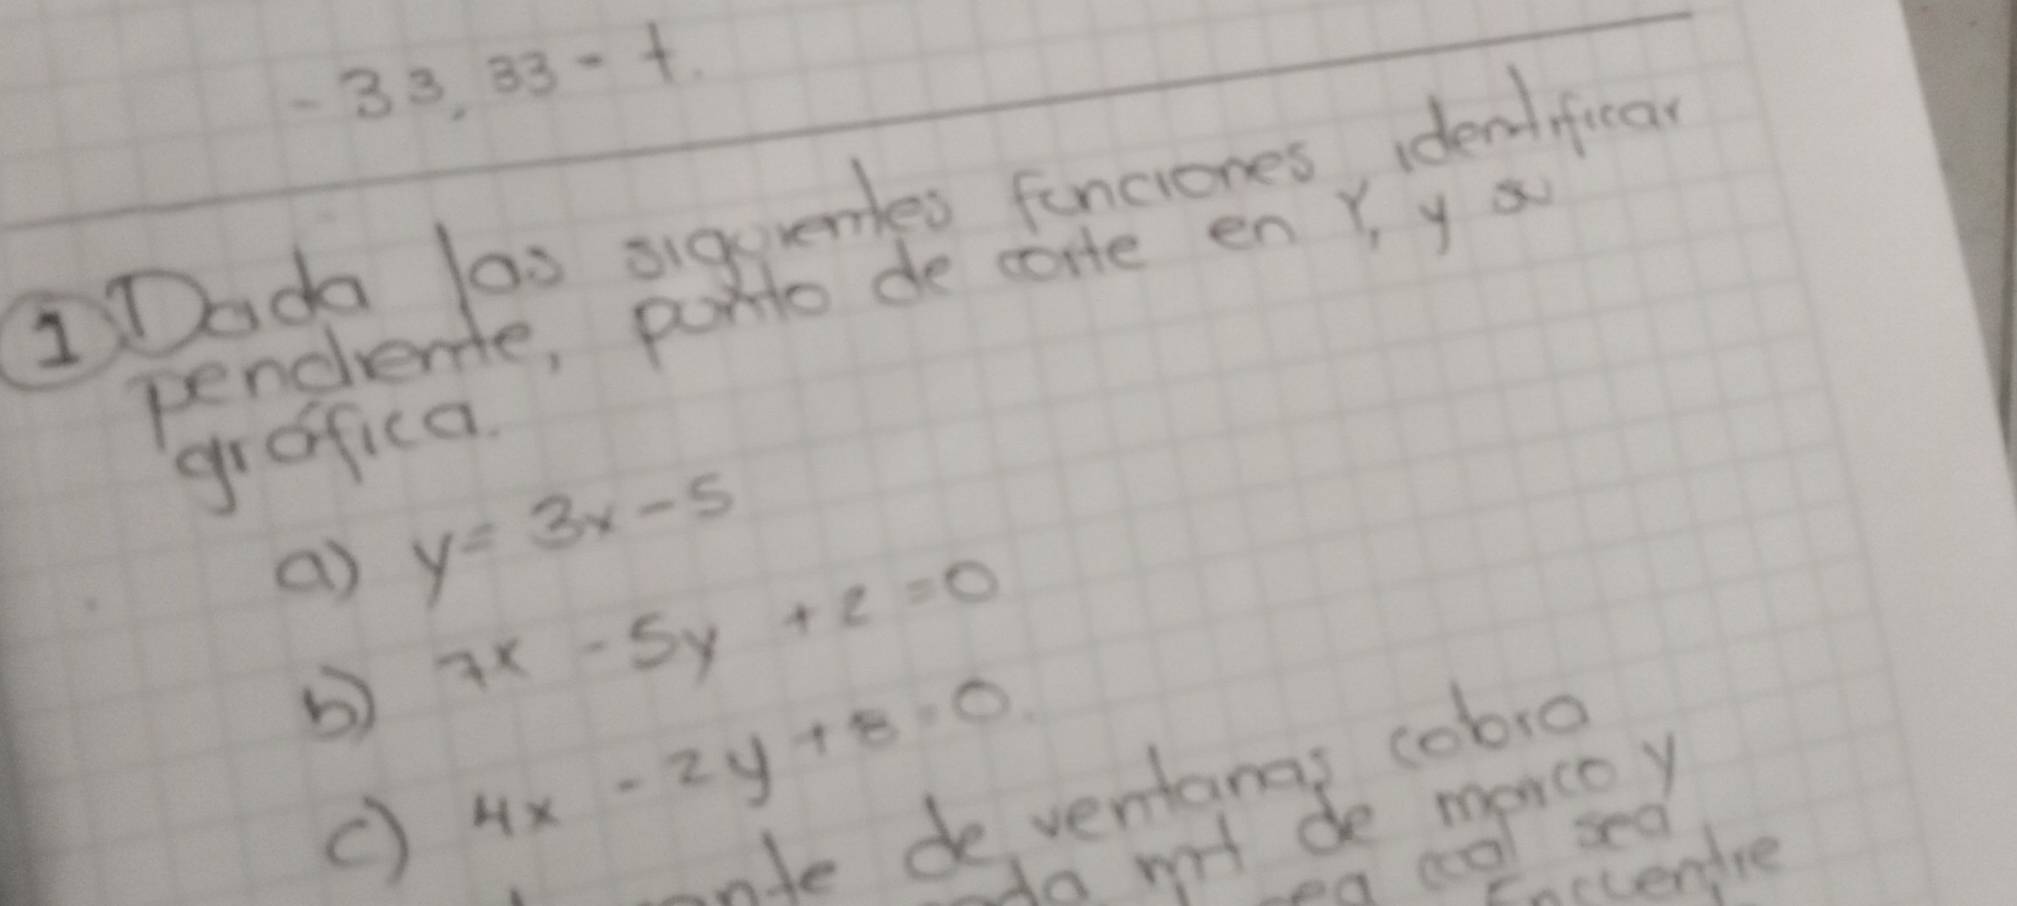 -33,33-t.
1 Dada las siguientes funciones identificar
pendiente, punto de corte en Y, y x
gráfica.
a) y = 3x - 5
b) 7x - 5y + 2 = 0
c) 4x - 2y + 8 = 0
de ventanas cobra
de marco y
sea
Encuentre